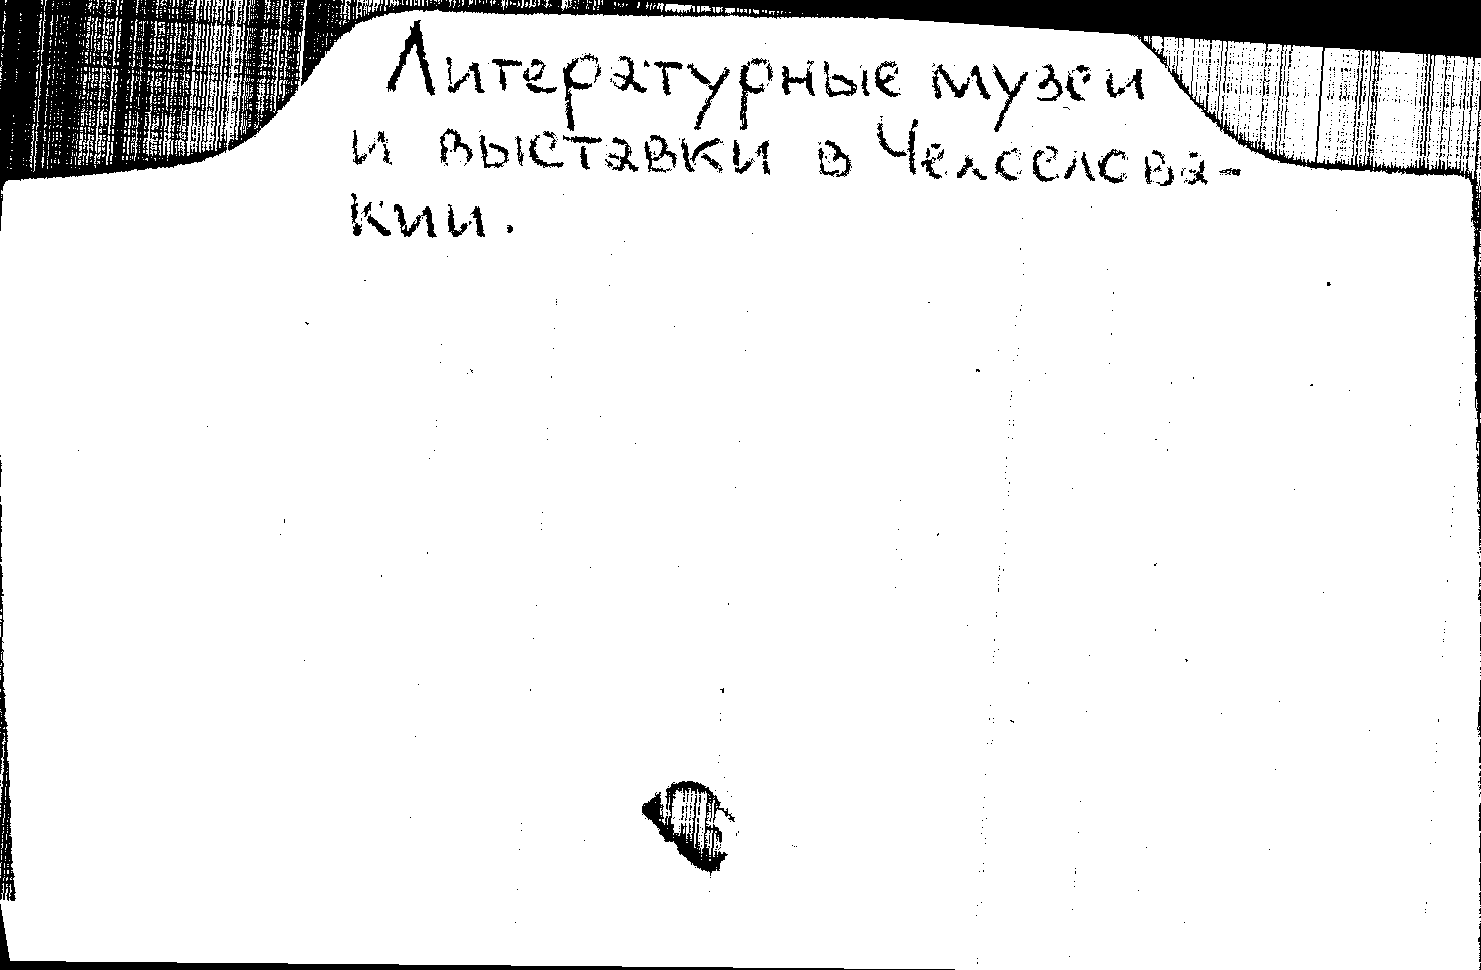 Литературные музеи
и выставки в Чехослова-
кии.